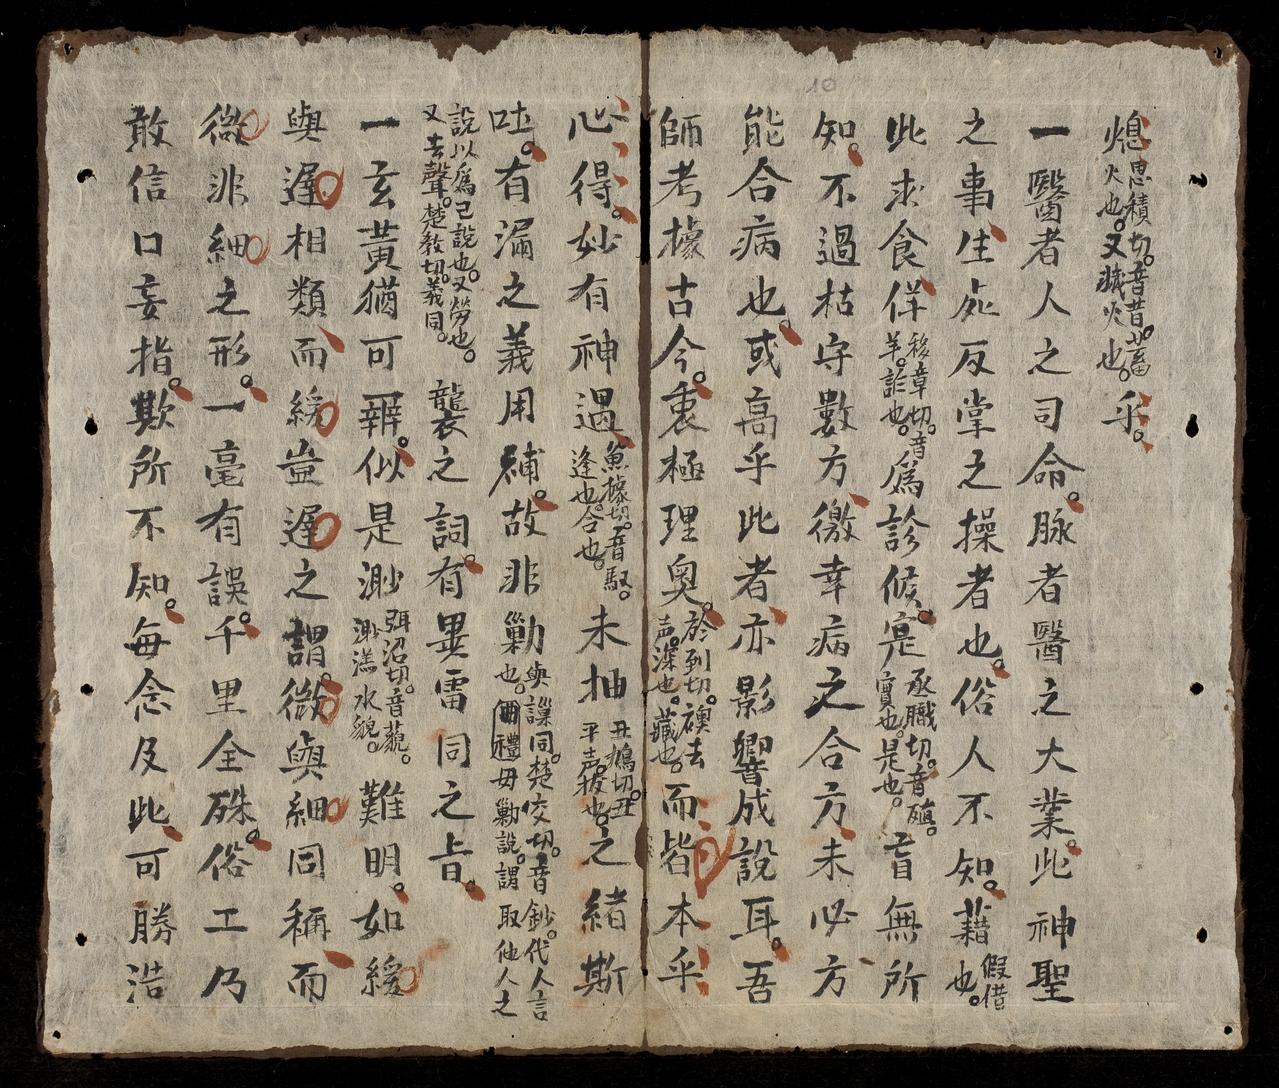 熄思積切。音昔。畜火也。又藏火也。乎。
一醫者人之司命。脉者醫之大業。此神聖
之事生死反掌之操者也。俗人不知。藉假借也。
此求食佯移章切。音羊。詐也。爲診候寔丞職切。音殖。實也。是也。盲無所
知。不過枯守數方徼幸病之合方未必方
能合病也。或高乎此者亦影響成說耳。吾
師考據古今。衷極理奥。於到切。襖去声。深也。藏也。而皆本乎
心得。妙有神遇魚據切。音馭。逢也。合也。未抽丑鳩切。丑平声。拔也。之緒斯
吐。有漏之義用補。故非勦與謤同。楚交切。音鈔。代人言也。曲禮毋勦說。謂取他人之
說以爲己說也。又勞也。又去聲。楚教切。義同。襲之詞。有異雷同之旨。
一玄黃猶可辨。似是渺弭沼切。音藐。渺漾水貌。難明。如緩
與遲相類而緩豈遲之謂。微與細同稱而
微非細之形。一毫有誤。千里全殊。俗工乃
敢信口妄指。欺所不知。每念及此可勝浩